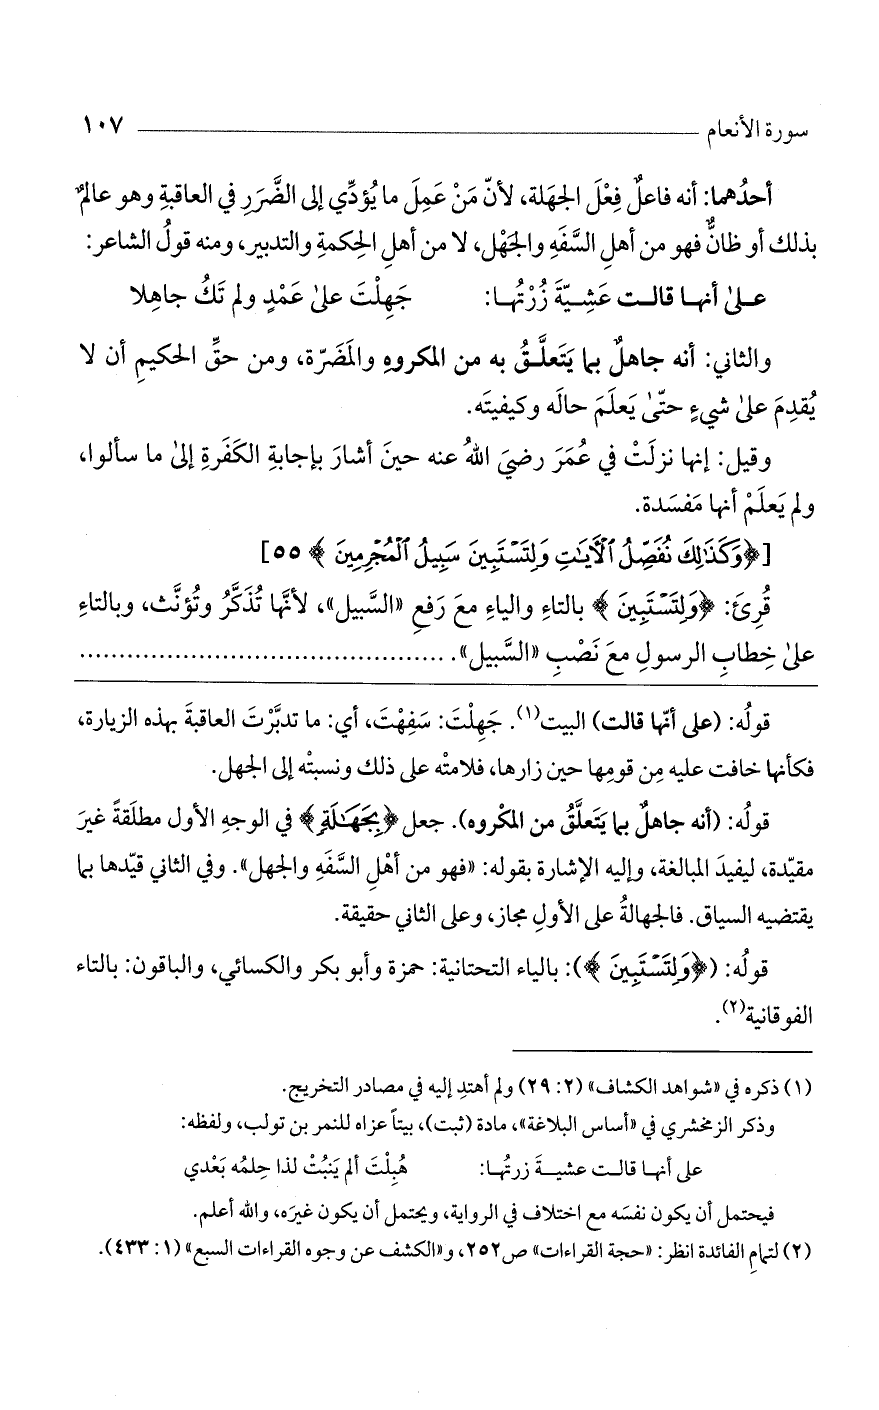 سورة الأنعام ١٠٧
أحدُهما: أنه فاعلٌ فِعْلَ الجهَلة، لأنّ مَنْ عَمِلَ ما يُؤدِّي إلى الضَّرَرِ في العاقبةِ وهو عالمٌ
بذلك أو ظانٌّ فهو من أهلِ السَّفَهِ والجَهْل، لا من أهلِ الحِكمةِ والتدبير، ومنه قولُ الشاعر:
علىٰ أنها قالت عَشِيّةَ زُرْتُها: جَهِلْتَ علىٰ عَمْدٍ ولم تَكُ جاهِلا
والثاني: أنه جاهلٌ بما يَتَعلَّقُ به من المكروهِ والمَضَرّة، ومن حقِّ الحكيمِ أن لا
يُقدِمَ علىٰ شيءٍ حتّىٰ يَعلَمَ حالَه وكيفيتَه.
وقيل: إنها نزلَتْ في عُمَرَ رضيَ اللهُ عنه حينَ أشارَ بإجابةِ الكَفَرةِ إلىٰ ما سألوا،
ولم يَعلَمْ أنها مَفسَدة.
[﴿وَكَذَٰلِكَ نُفَصِّلُ ٱلْآيَٰتِ وَلِتَسْتَبِينَ سَبِيلُ ٱلْمُجْرِمِينَ﴾ ٥٥]
قُرِئَ: ﴿وَلِتَسْتَبِينَ﴾ بالتاءِ والياءِ معَ رَفعِ «السَّبيل»، لأنَّها تُذَكَّرُ وتُؤنَّث، وبالتاءِ
علىٰ خِطابِ الرسولِ معَ نَصْبِ «السَّبيل». ..............................................
قولُه: (على أنّها قالت) البيت(١). جَهِلْتَ: سَفِهْتَ، أي: ما تدبَّرْتَ العاقبةَ بهذه الزيارة،
فكأنها خافت عليه مِن قومِها حين زارها، فلامتْه على ذلك ونسبتْه إلى الجهل.
قولُه: (أنه جاهلٌ بما يَتَعلَّقُ من المكْروه). جعل ﴿بِجَهَٰلَةٍ﴾ في الوجهِ الأول مطلَقةً غيرَ
مقيّدة، ليفيدَ المبالغة، وإليه الإشارة بقوله: «فهو من أهْلِ السَّفَهِ والجهل». وفي الثاني قيّدها بما
يقتضيه السياق. فالجهالةُ على الأولِ مجاز، وعلى الثاني حقيقة.
قولُه: (﴿وَلِتَسْتَبِينَ﴾): بالياء التحتانية: حمزة وأبو بكر والكسائي، والباقون: بالتاء
الفوقانية(٢).
(١) ذكره في «شواهد الكشاف» (٢: ٢٩) ولم أهتدِ إليه في مصادر التخريج.
وذكر الزمخشري في «أساس البلاغة»، مادة (ثبت)، بيتاً عزاه للنمر بن تولب، ولفظه:
على أنها قالت عشيةَ زرتُها: هُبِلْتَ ألم يَنبُتْ لذا حِلمُه بَعْدي
فيحتمل أن يكون نفسَه مع اختلاف في الرواية، ويحتمل أن يكون غيرَه، والله أعلم.
(٢) لتمامِ الفائدة انظر: «حجة القراءات» ص٢٥٢، و«الكشف عن وجوه القراءات السبع» (١: ٤٣٣).